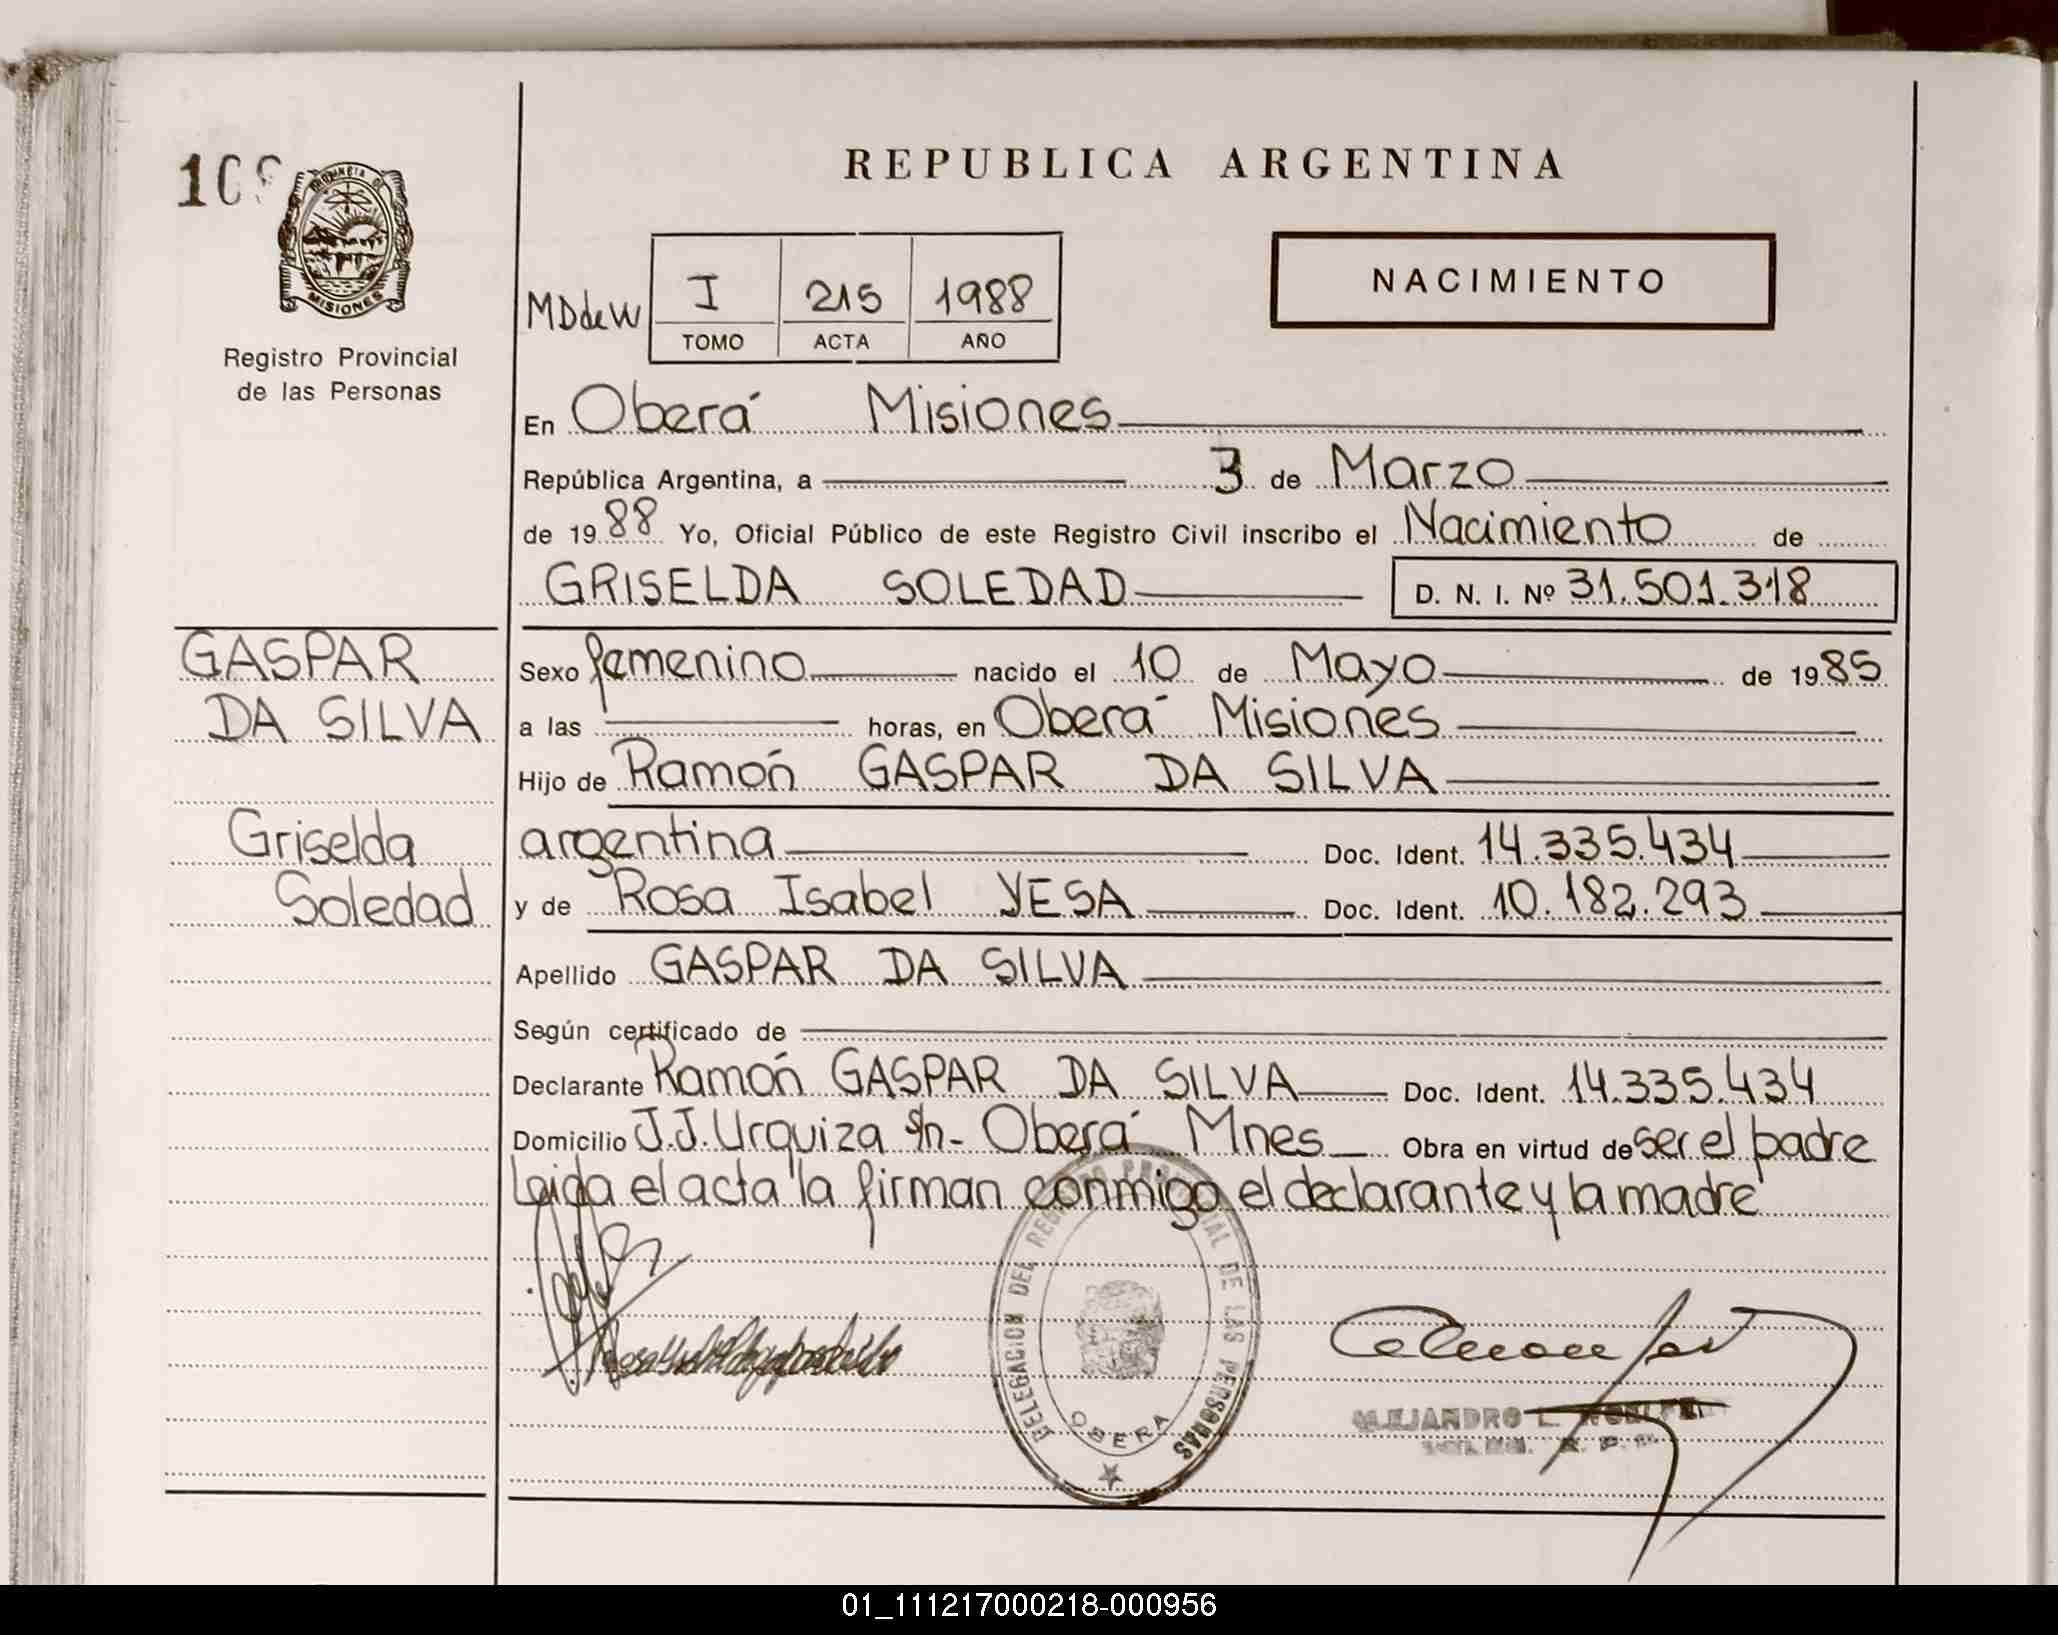 REPUBLICA ARGENTINA
PROVINCIA DE
MISIONES
Registro Provincial
de las Personas
MDdeW
I 215 1988
TOMO ACTA AÑO
NACIMIENTO
En Oberá Misiones
República Argentina, a 3 de Marzo
de 1988 Yo, Oficial Público de este Registro Civil inscribo el Nacimiento de
GRISELDA SOLEDAD D. N. I. Nº 31.501.318
GASPAR
DA SILVA
Griselda
Soledad
Sexo femenino nacido el 10 de Mayo de 1985
a las horas, en Oberá Misiones
Hijo de Ramón GASPAR DA SILVA
argentina Doc. Ident. 14.335.434
y de Rosa Isabel YESA Doc. Ident. 10.182.293
Apellido GASPAR DA SILVA
Según certificado de
Declarante Ramón GASPAR DA SILVA Doc. Ident. 14.335.434
Domicilio J.J.Urquiza s/n- Oberá Mnes Obra en virtud de ser el padre
Leida el acta la firman conmigo el declarante y la madre
DELEGACION DEL REGISTRO PROVINCIAL DE LAS PERSONAS
OBERA
ALEJANDRO L.
01_111217000218-000956